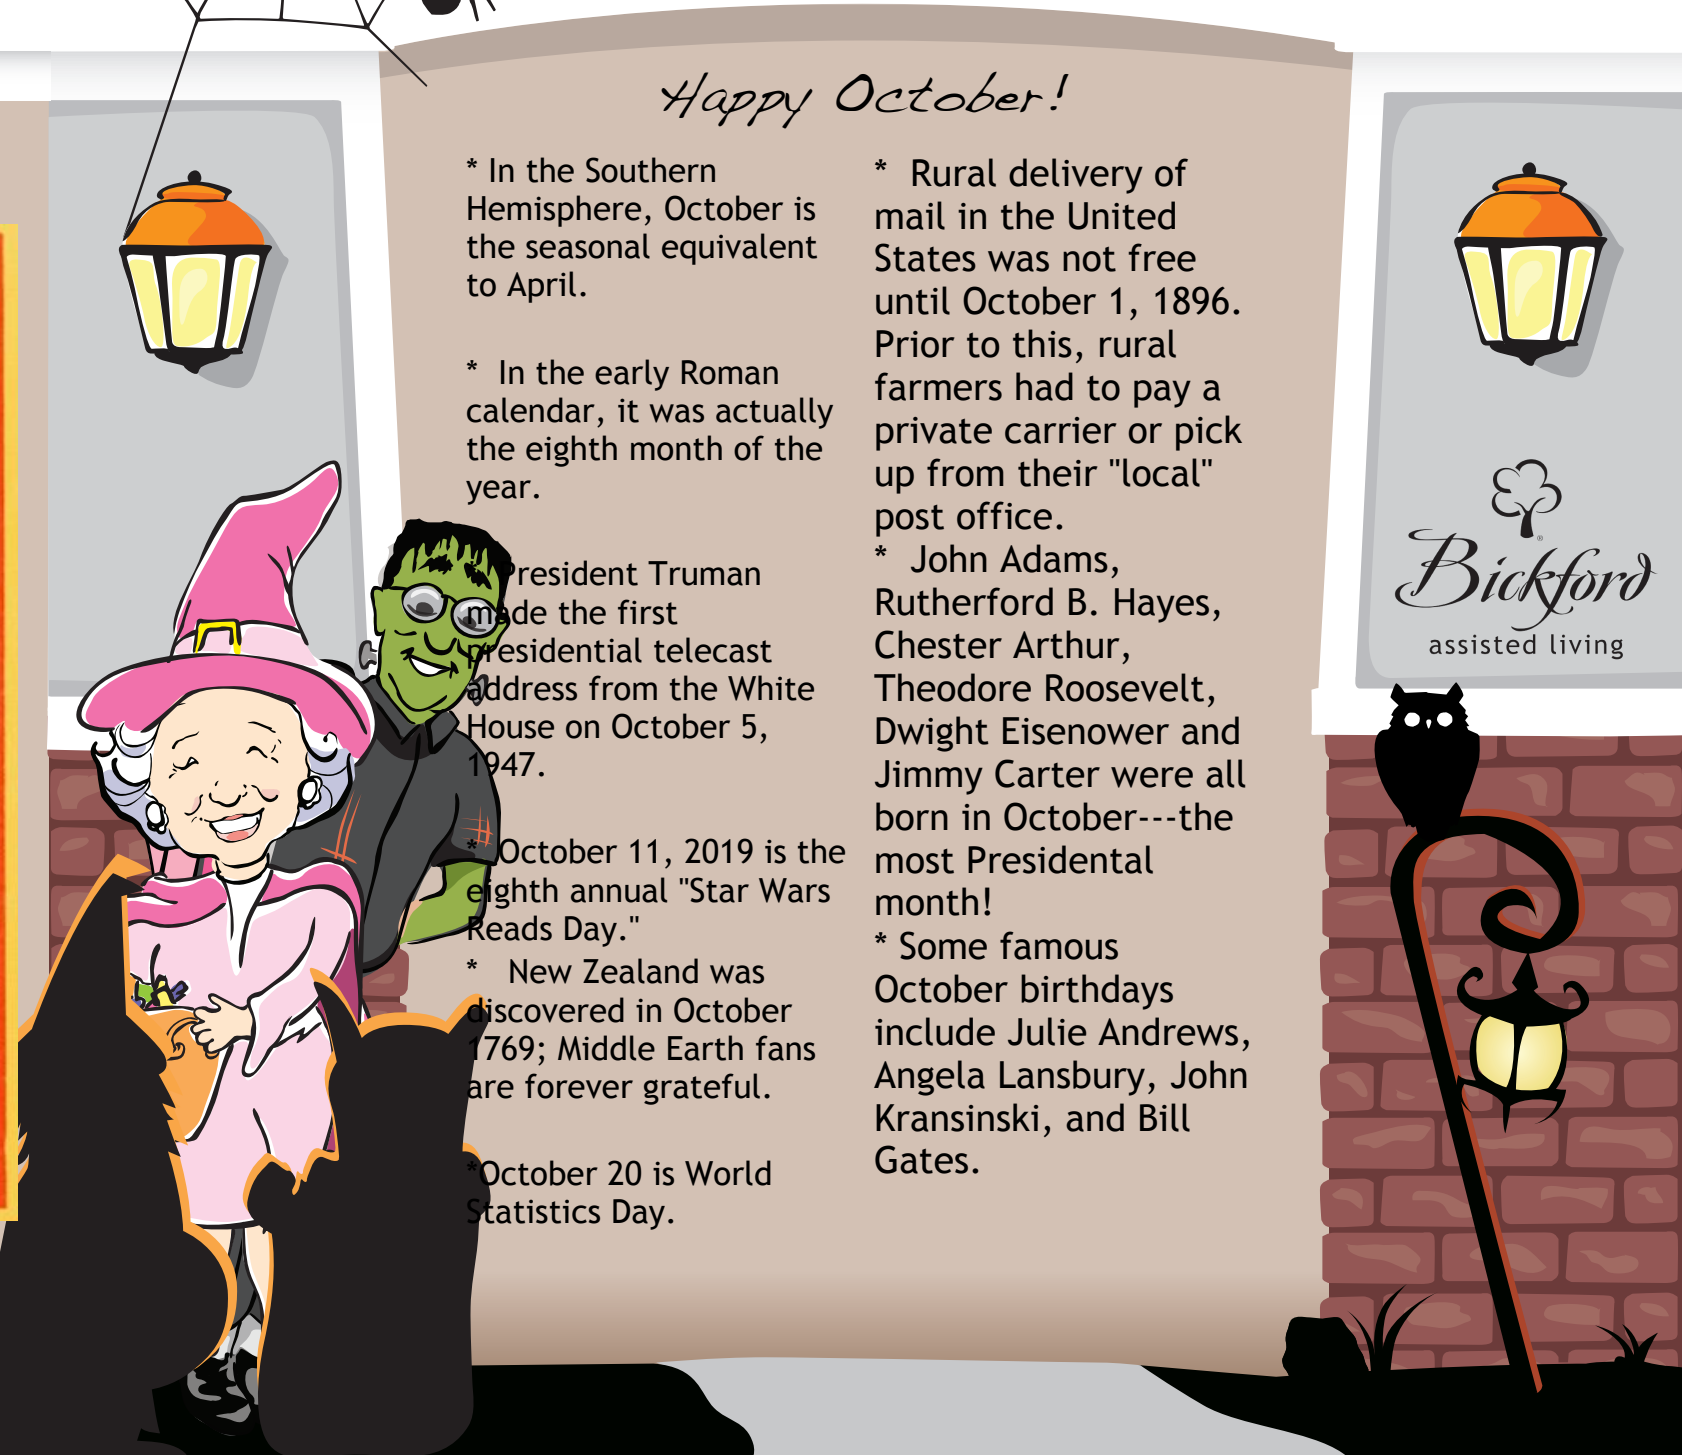 Happy October!
* In the Southern
Hemisphere, October is
the seasonal equivalent
to April.
* In the early Roman
calendar, it was actually
the eighth month of the
year.
President Truman
made the first
presidential telecast
address from the White
House on October 5,
1947.
* October 11, 2019 is the
eighth annual "Star Wars
Reads Day."
* New Zealand was
discovered in October
1769; Middle Earth fans
are forever grateful.
*October 20 is World
Statistics Day.
* Rural delivery of
mail in the United
States was not free
until October 1, 1896.
Prior to this, rural
farmers had to pay a
private carrier or pick
up from their "local"
post office.
* John Adams,
Rutherford B. Hayes,
Chester Arthur,
Theodore Roosevelt,
Dwight Eisenower and
Jimmy Carter were all
born in October---the
most Presidental
month!
* Some famous
October birthdays
include Julie Andrews,
Angela Lansbury, John
Kransinski, and Bill
Gates.
Bickford®
assisted living